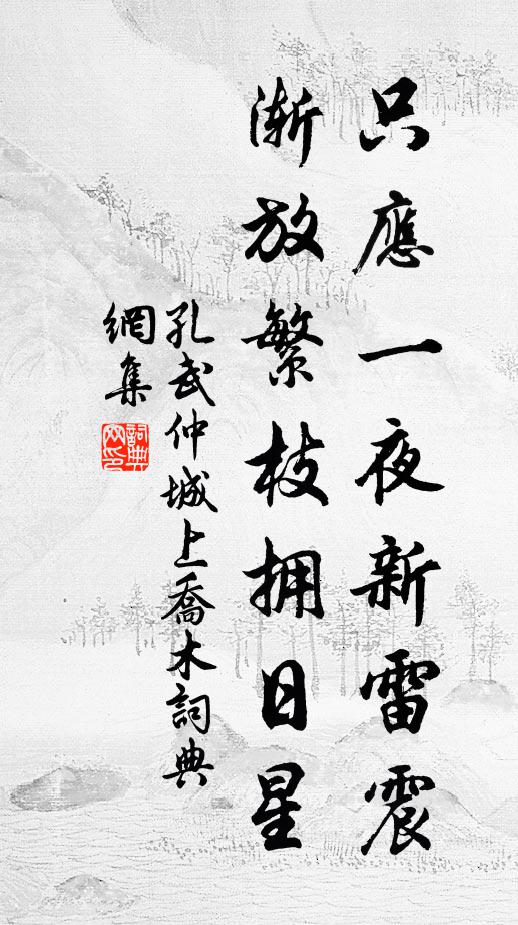 只應一夜新雷震
漸放繁枝拥日星
孔武仲城上喬木詞典
網集
詞典
网印